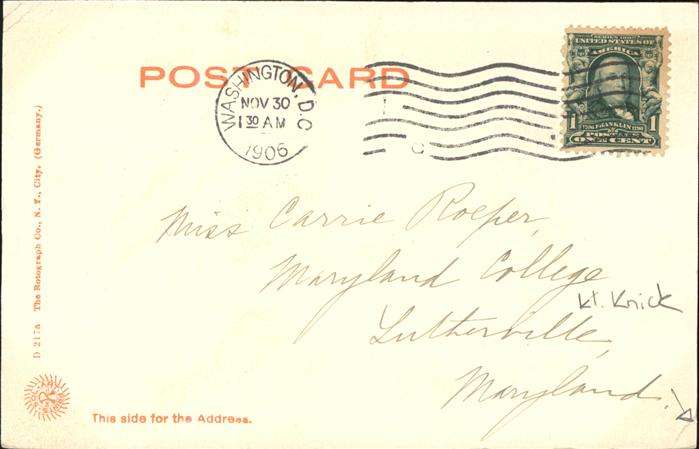 POST CARD
WASHINGTON, D.C.
NOV 30
1 30 AM
1906
SERIES 1902
UNITED STATES OF AMERICA
FRANKLIN
1 POSTAGE 1
ONE CENT
Miss Carrie Roeper,
Maryland College
Kt. Knick
Lutherville,
Maryland.
D 217a The Rotograph Co., N. Y., City. (Germany.)
This side for the Address.